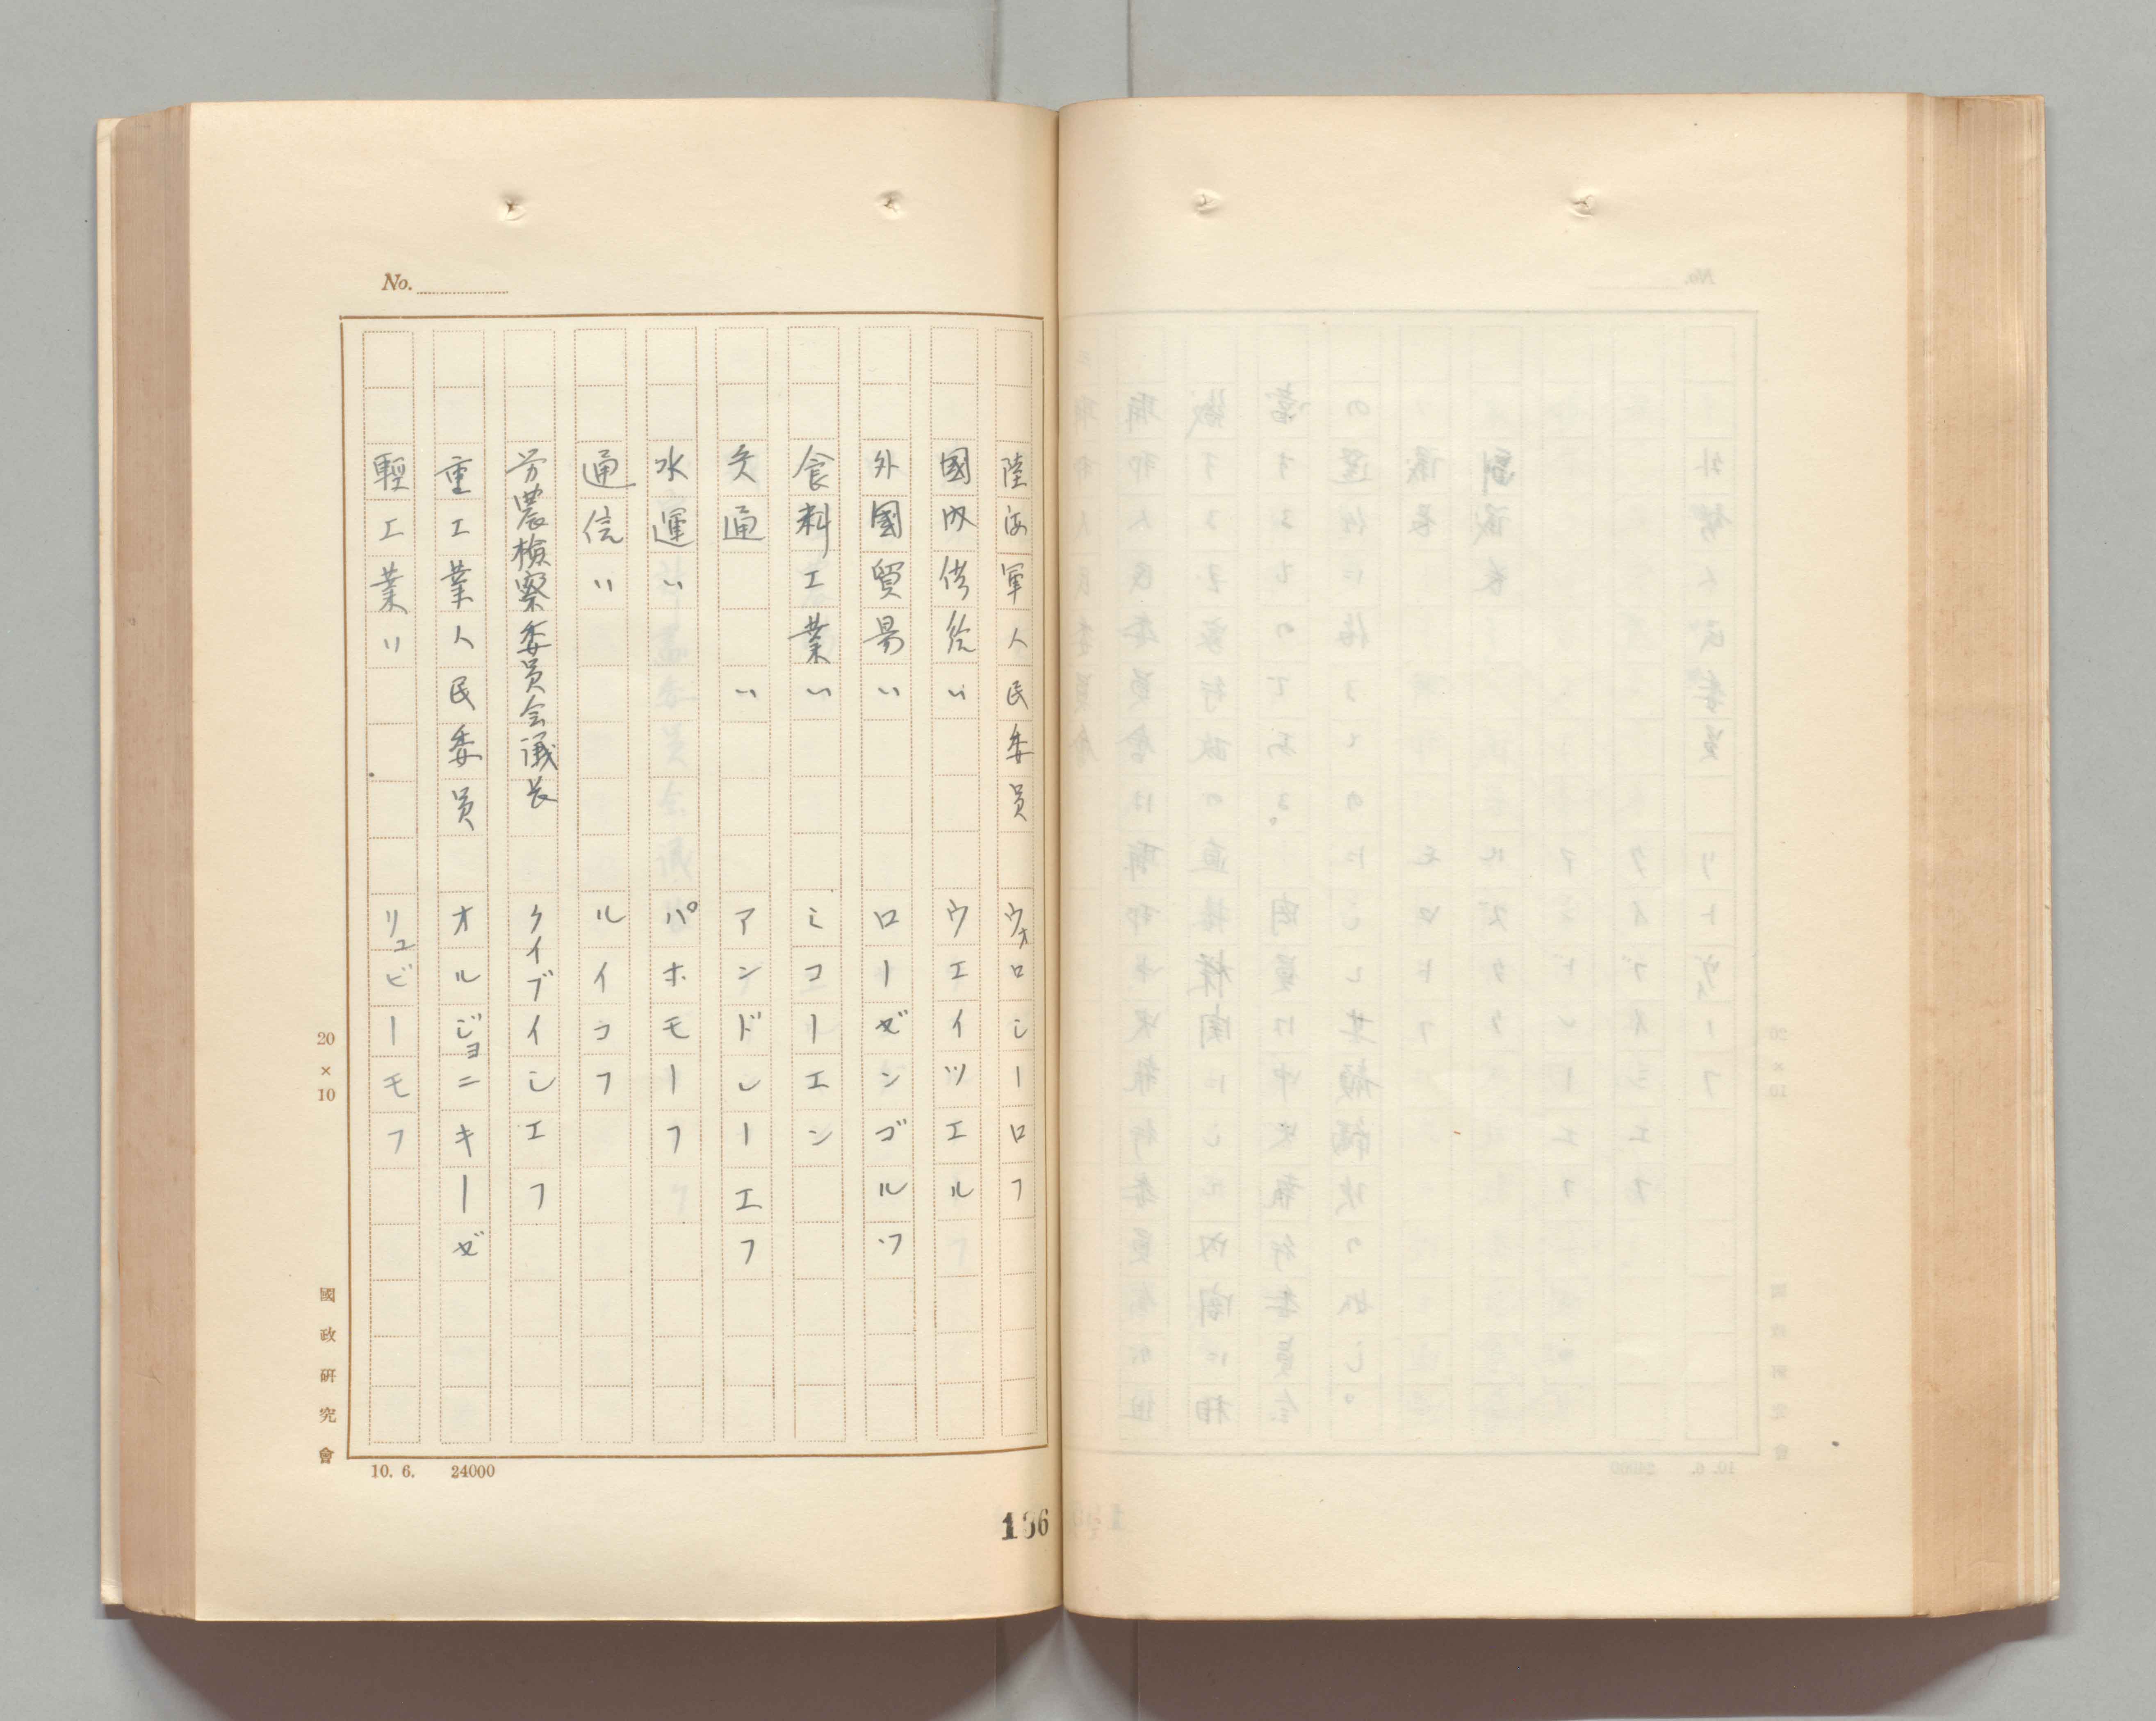 No.
陸海軍人民委員 ウォロシーロフ
國内供給〃 ウエイツエル
外國貿易〃 ローゼンゴルツ
食料工業〃 ミコーエン
交通〃 アンドレーエフ
水運〃 パホモーフ
通信〃 ルイコフ
労農檢察委員会議長 クイブイシエフ
重工業人民委員 オルジョニキーゼ
輕工業〃 リュビーモフ
20×10
國政研究會
10. 6. 24000
136